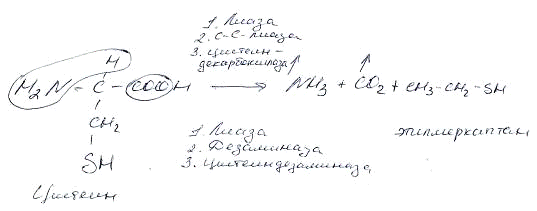 1. Лиаза
2. С-С-лиаза
3. Цистеин-
декарбоксилаза
H
H₂N - C - COOH → NH₃ + CO₂ + CH₃-CH₂-SH
CH₂
SH
Цистеин
1. Лиаза
2. Дезаминаза
3. Цистеиндезаминаза
этилмеркаптан